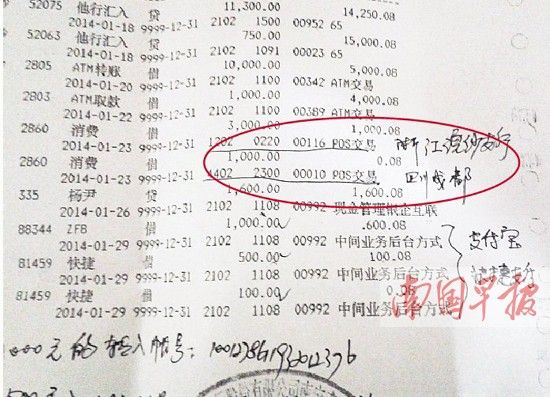 52075 11,300.00 14,250.08
他行汇入 贷
2014-01-18 9999-12-31 2102 1500 00952 65
52063 750.00 15,000.08
他行汇入 贷
2014-01-18 9999-12-31 2102 1091 00023 65
2805 10,000.00 5,000.08
ATM转账 借
2014-01-20 9999-12-31 2102 1100 00342 ATM交易
2803 1,000.00 4,000.08
ATM取款 借
2014-01-22 9999-12-31 2102 1100 00389 ATM交易
2860 3,000.00 1,000.08
消费 借
2014-01-23 9999-12-31 1202 0220 00116 POS交易 浙江
2860 1,000.00 0.08
消费 借
2014-01-23 9999-12-31 4402 2300 00010 POS交易 四川成都
335 1,600.00 1,600.08
杨尹 贷
2014-01-26 9999-12-31 2102 1108 00992 现金管理银企互联
88344 1,000.00 600.08
ZFB 借
2014-01-29 9999-12-31 2102 1108 00992 中间业务后台方式 支付宝
81459 500.00 100.08
快捷 借
2014-01-29 9999-12-31 2102 1108 00992 中间业务后台方式
81459 100.00 0.08
快捷 借
2014-01-29 9999-12-31 2102 1108 00992 中间业务后台方式
南国早报
000元的转入帐号: